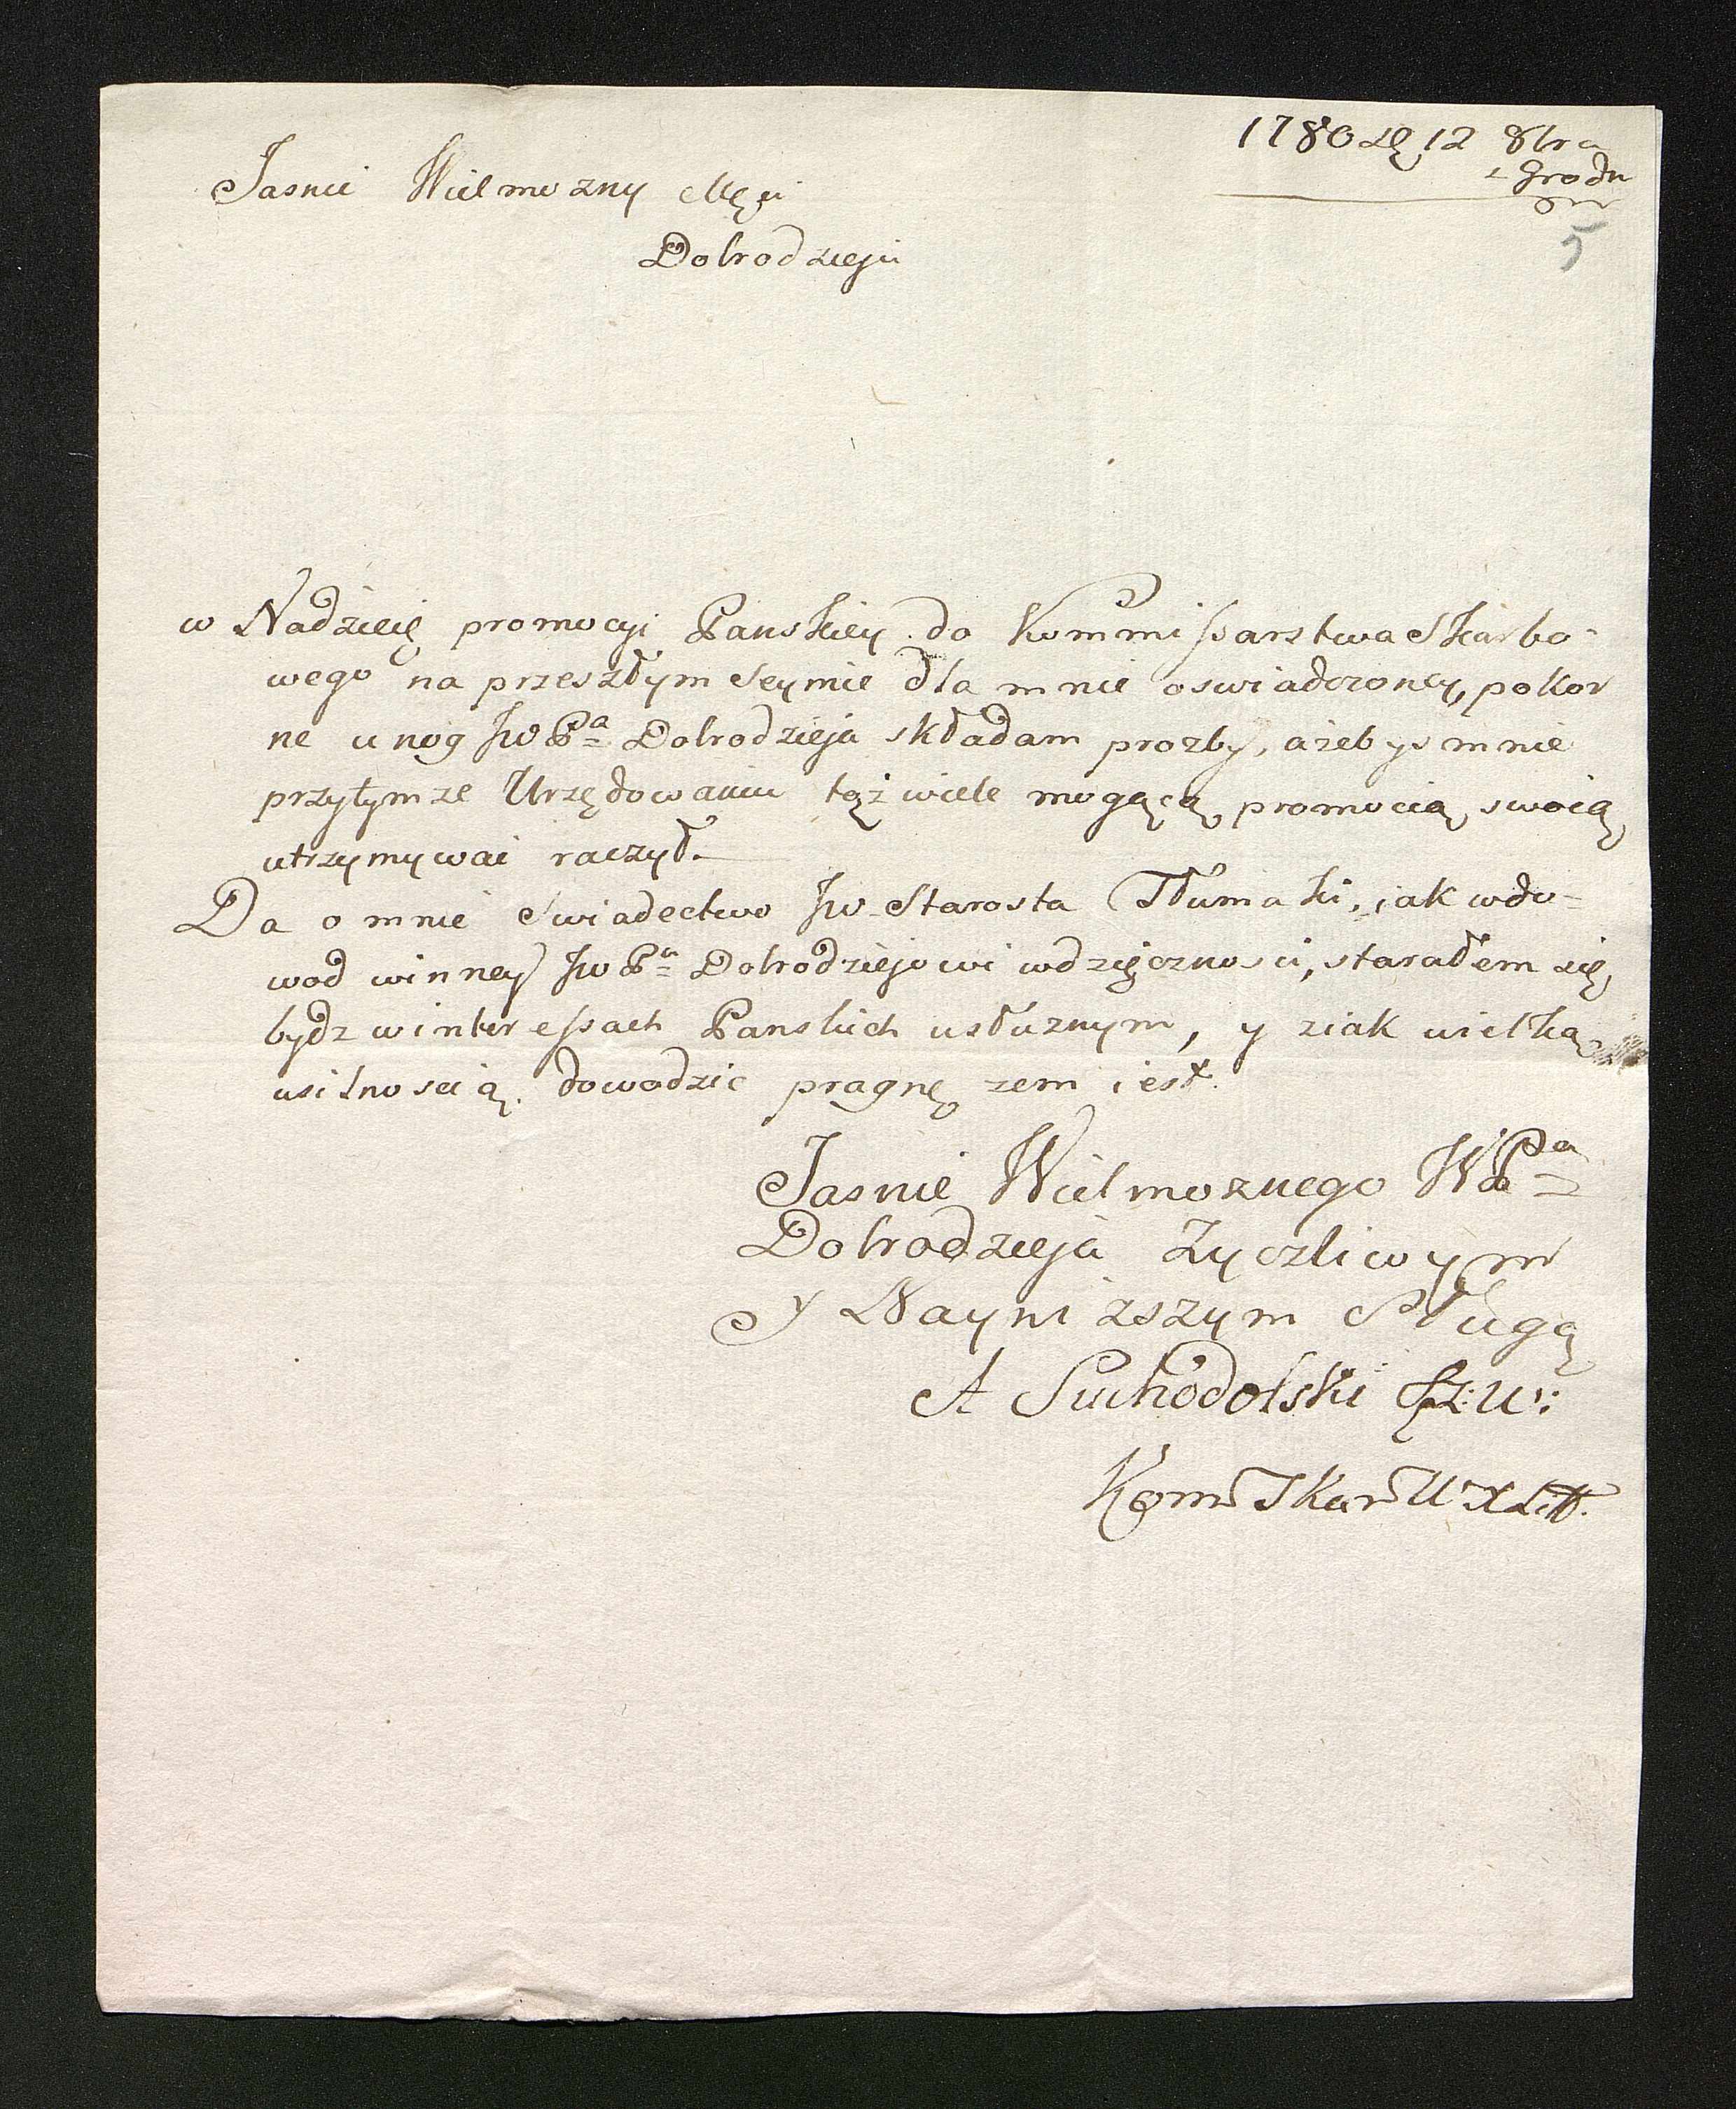 1780 12 8bra
z Grodn
5
Jasnie Wielmozny Mśći
Dobrodzieju
w Nadzieię promocyi Panskiey do Kommissarstwa Skarbo-
wego na przeszłym Seymie dla mnie oswiadczoney, pokor
ne u nog Jw Pa Dobrodzieja składam prozby, ażebys mnie
przytymze Urzędowaniu tąż wiele mogącą promocią swoią
utrzymywać raczył.
Da o mnie Swiadectwo Jw Starosta Tłumaki, jak wdo-
wod winney Jw Pu Dobrodziejowi wdzięcznosci, starałem się
bydz w interessach Panskich usłuznym, y ziak wielką
usilnoscią dowodzic pragnę zem iest.
Jasnie Wielmoznego WPa
Dobrodzieja Zyczliwym
y Naynizszym Sługą
A Suchodolski
Kom Skar W X Litt.